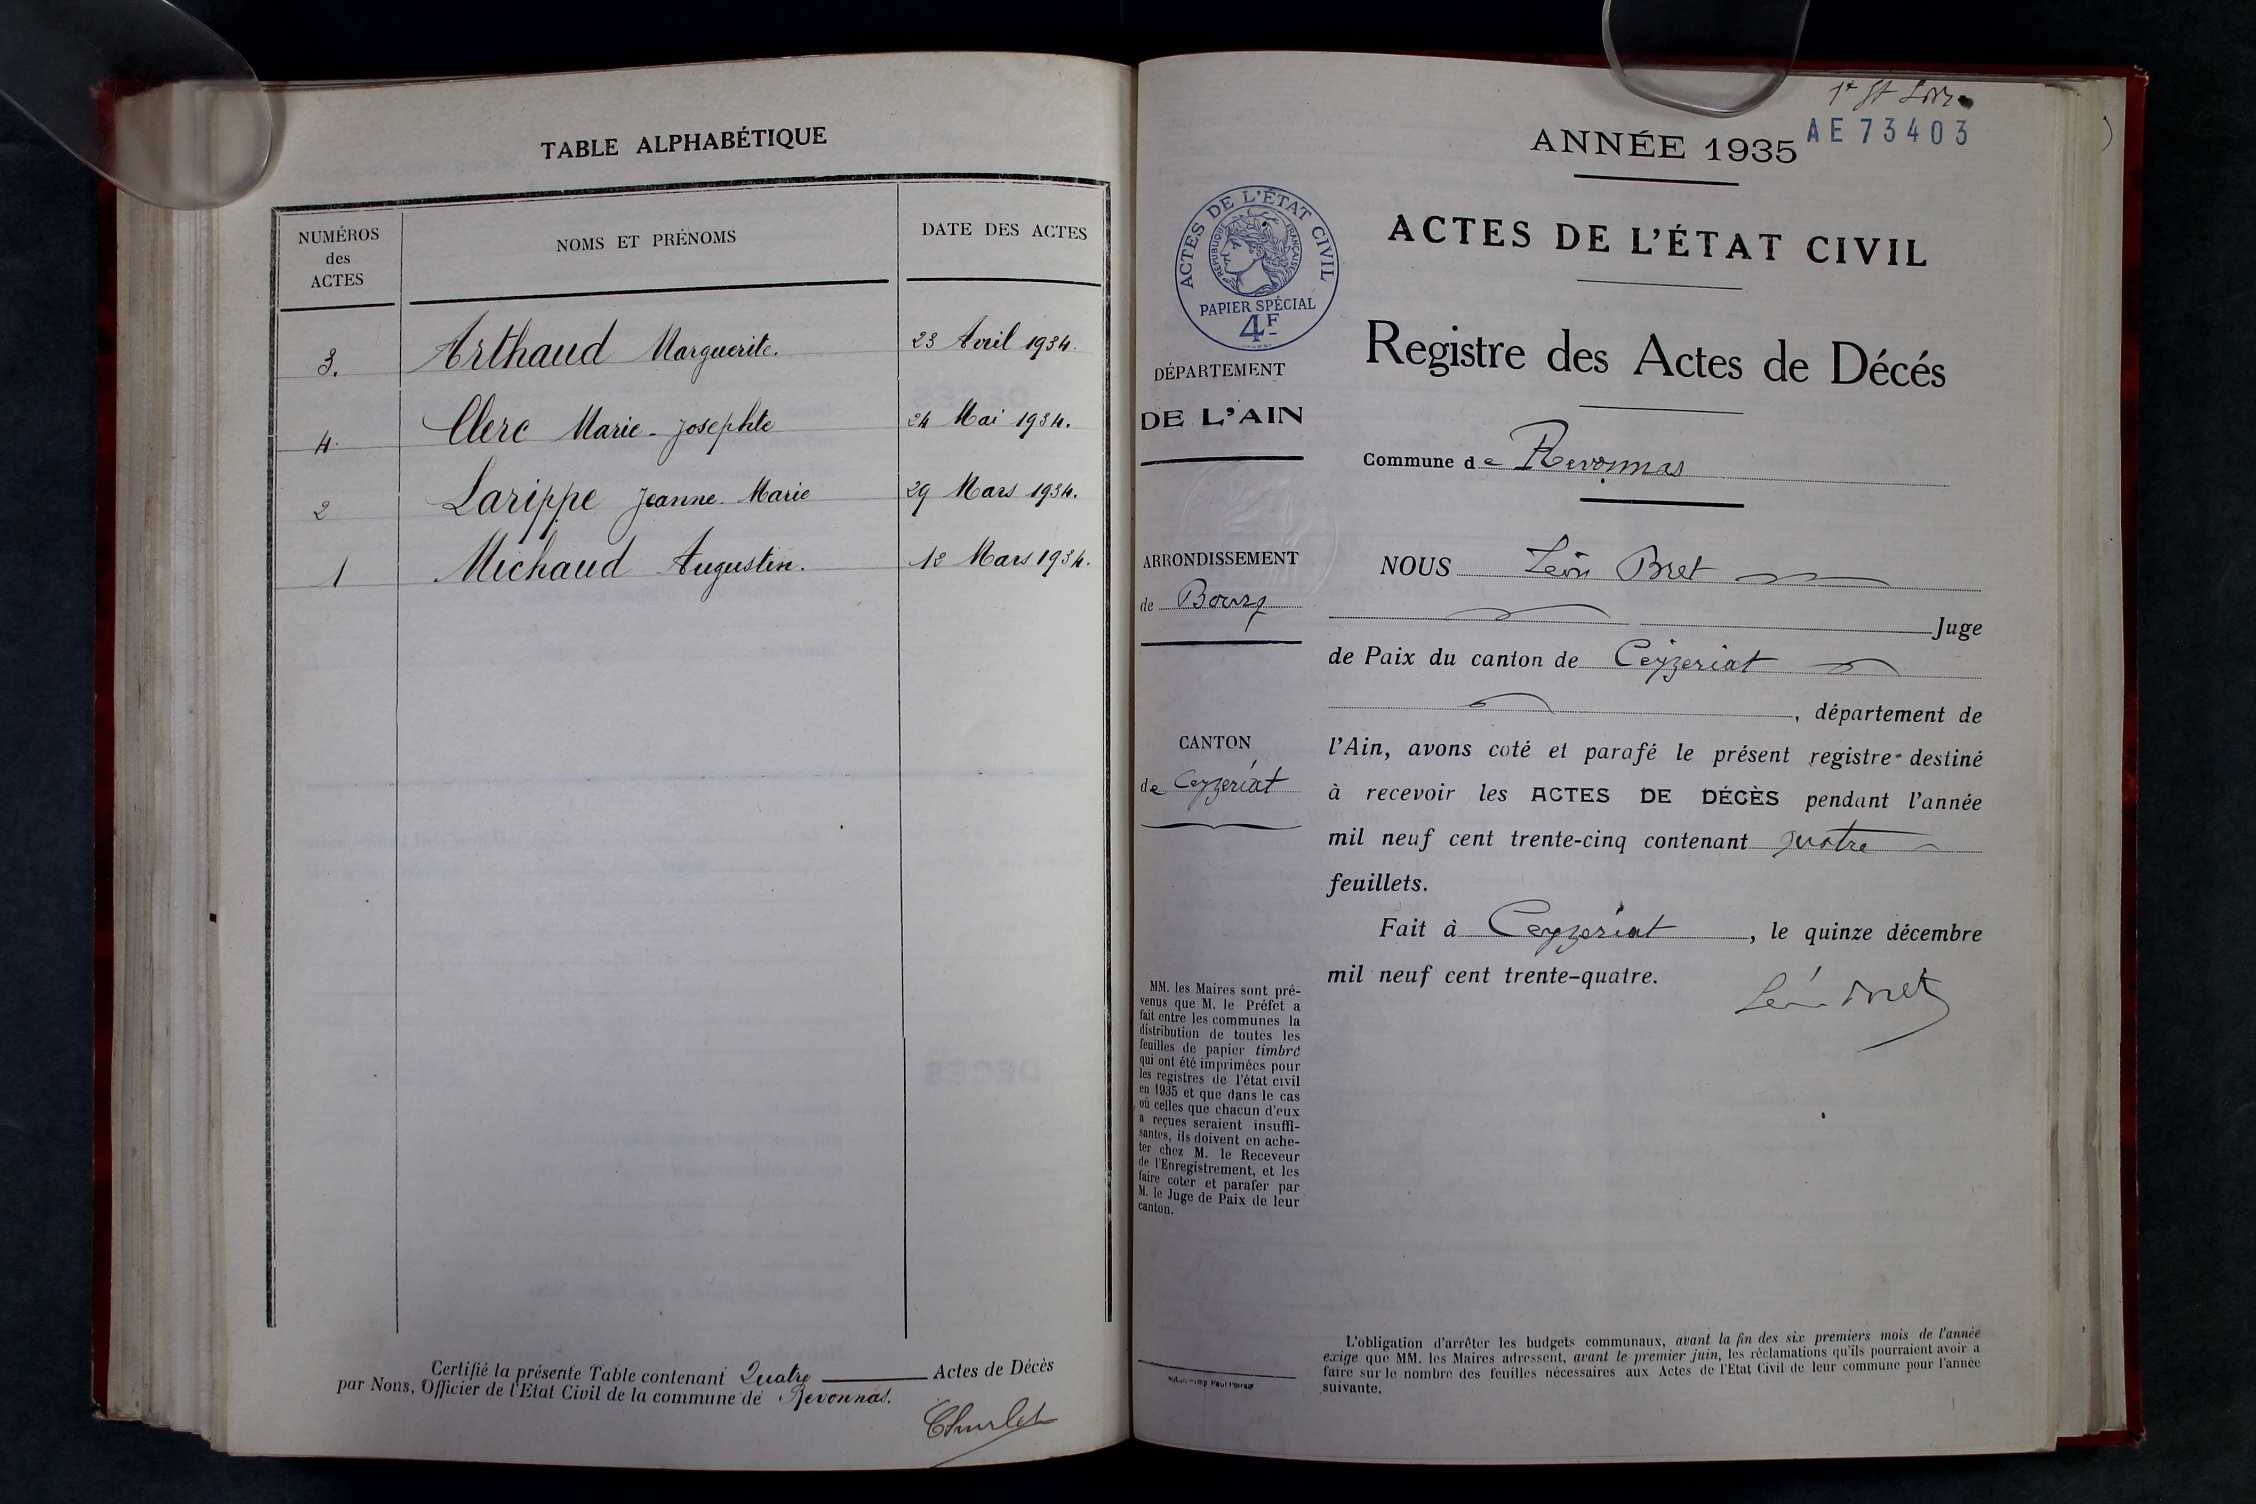 TABLE ALPHABÉTIQUE
NUMÉROS
des
ACTES
NOMS ET PRÉNOMS
DATE DES ACTES
3. Arthaud Marguerite. 23 Avril 1934.
4. Clerc Marie-Josephte 24 Mai 1934.
2 Larippe Jeanne Marie 29 Mars 1934.
1 Michaud Augustin. 12 Mars 1934.
Certifié la présente Table contenant Quatre Actes de Décès
par Nous, Officier de l'Etat Civil de la commune de Revonnas.
AE73403
ANNÉE 1935
ACTES DE L'ÉTAT CIVIL
RÉPUBLIQUE FRANÇAISE
PAPIER SPÉCIAL
4F
ACTES DE L'ÉTAT CIVIL
Registre des Actes de Décés
DÉPARTEMENT
DE L'AIN
Commune de Revonnas
ARRONDISSEMENT
de Bourg
NOUS Léon Bret
Juge
de Paix du canton de Ceyzeriat
, département de
CANTON
de Ceyzeriat
l'Ain, avons coté et parafé le présent registre destiné
à recevoir les ACTES DE DÉCÈS pendant l'année
mil neuf cent trente-cinq contenant quatre
feuillets.
Fait à Ceyzeriat, le quinze décembre
mil neuf cent trente-quatre.
Léon Bret
MM. les Maires sont pré-
venus que M. le Préfet a
fait entre les communes la
distribution de toutes les
feuilles de papier timbré
qui ont été imprimées pour
les registres de l'état civil
en 1935 et que dans le cas
où celles que chacun d'eux
a reçues seraient insuffi-
santes, ils doivent en ache-
ter chez M. le Receveur
de l'Enregistrement, et les
faire coter et parafer par
M. le Juge de Paix de leur
canton.
L'obligation d'arrêter les budgets communaux, avant la fin des six premiers mois de l'année
exige que MM. les Maires adressent, avant le premier juin, les réclamations qu'ils pourraient avoir à
faire sur le nombre des feuilles nécessaires aux Actes de l'Etat Civil de leur commune pour l'année
suivante.